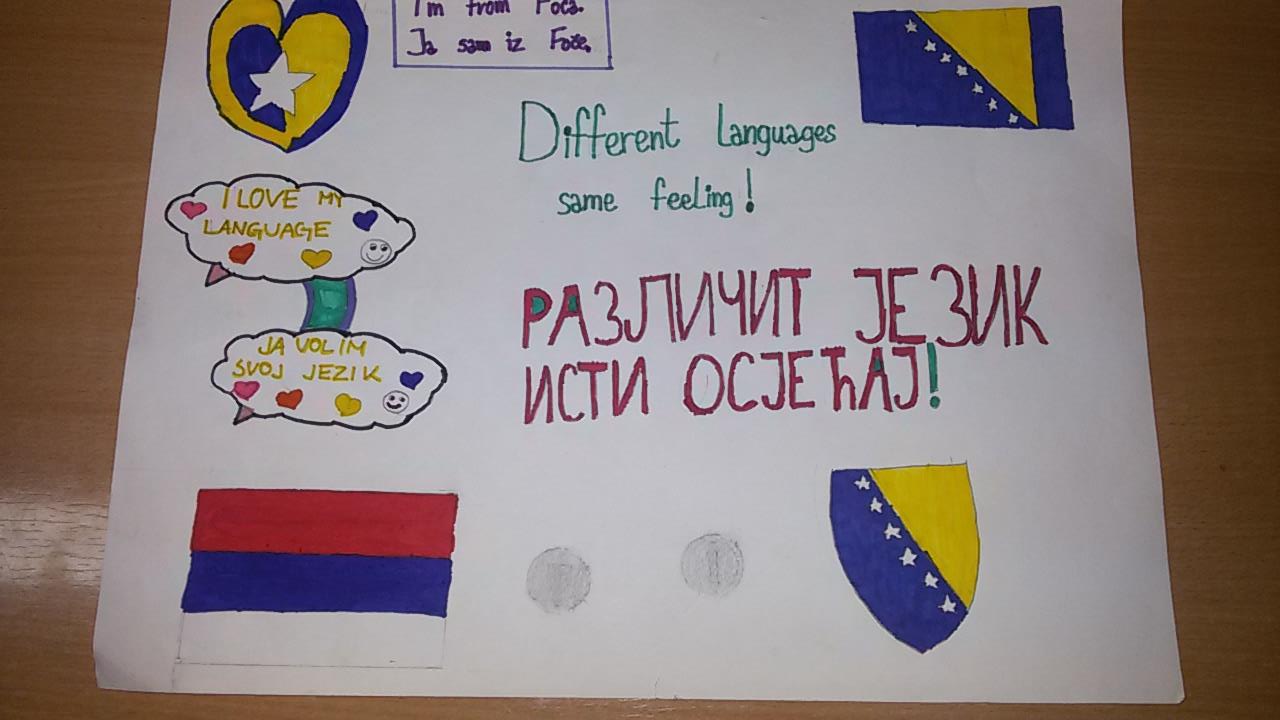 I'm from Foča.
Ja sam iz Foče.
Different Languages
same feeling!
I LOVE MY
LANGUAGE
РАЗЛИЧИТ ЈЕЗИК
ИСТИ ОСЈЕЋАЈ!
JA VOLIM
SVOJ JEZIK